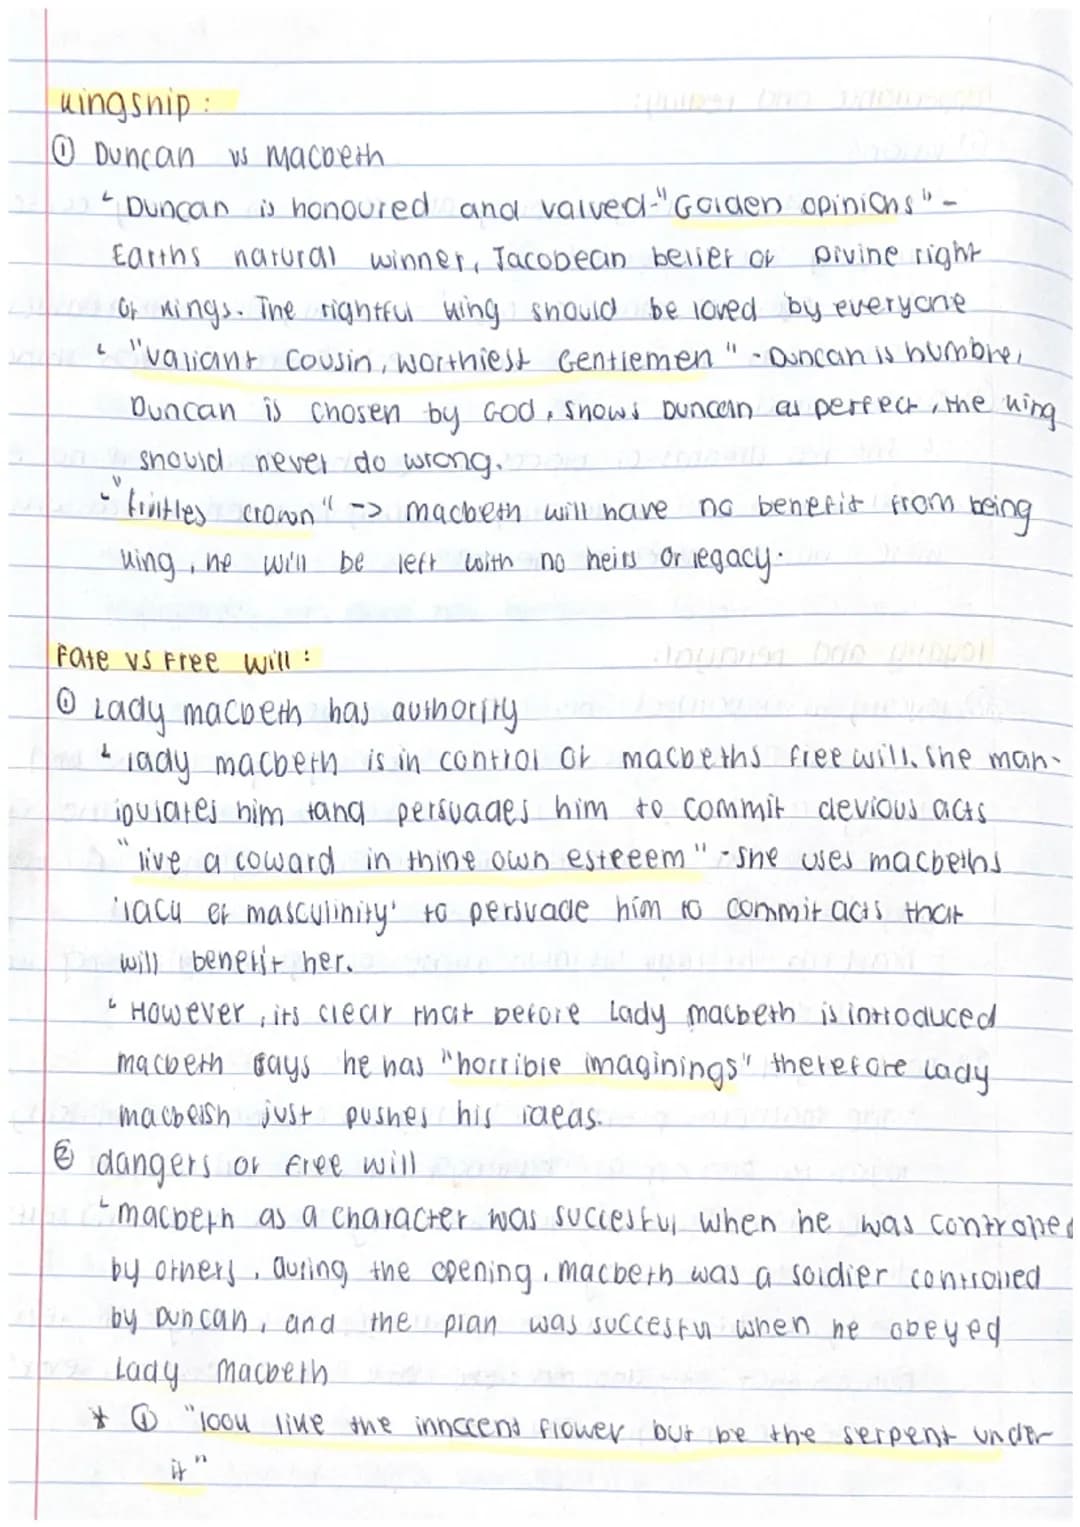 kingship :
① Duncan vs Macbeth
↳ Duncan is honoured and valved - "Golden opinions" -
Earths natural winner, Jacobean belief of Divine right
of kings. The rightful king should be loved by everyone
↳ "valiant cousin, worthiest Gentlemen" - Duncan is humble,
Duncan is chosen by God, shows Duncan as perfect, the king
should never do wrong.
↳ "fruitles crown" -> macbeth will have no benefit from being
king, he will be left with no heirs or legacy.
Fate vs Free will :
① Lady macbeth has authority
↳ lady macbeth is in control of macbeths free will. She man-
ipulates him and persuades him to commit devious acts
"live a coward in thine own esteeem" - she uses macbeths
'lack of masculinity' to persuade him to commit acts that
will benefit her.
↳ However, its clear that before Lady macbeth is introduced
macbeth says he has "horrible imaginings" therefore Lady
macbeth just pushes his ideas.
② dangers of Free will
↳ macbeth as a character was succesful when he was controlled
by others. During the opening, macbeth was a soldier controlled
by Duncan, and the plan was succesful when he obeyed
Lady Macbeth
* ① "look like the innocent flower but be the serpent under
it"